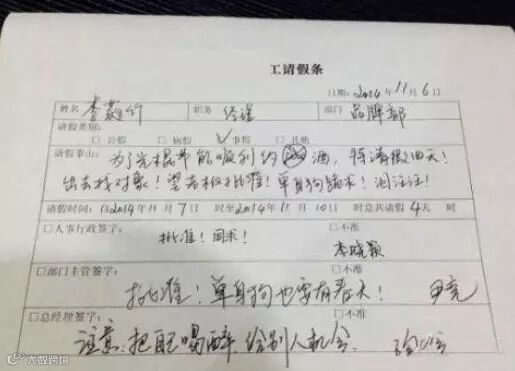 工请假条
日期：2014年11月6日
姓名 李 竹 职务 经理 部门 品牌部
请假类别：
□公假 □病假 ✓事假 □其他
请假事由：为了光棍节能顺利约 酒，特请假四天！
出去找对象！望 批准！单身狗 ！泪汪汪！
请假时间：自2014年11月7日 时至2014年11月10日 时总共请假4天 时
□人事行政签字： □不准
批准！同求！ 李晓颖
□部门主管签字： □不准
批准！单身狗也要有春天！ 尹亮
□总经理签字： □不准
注意：把自己喝醉，给别人机会。
大数跨境